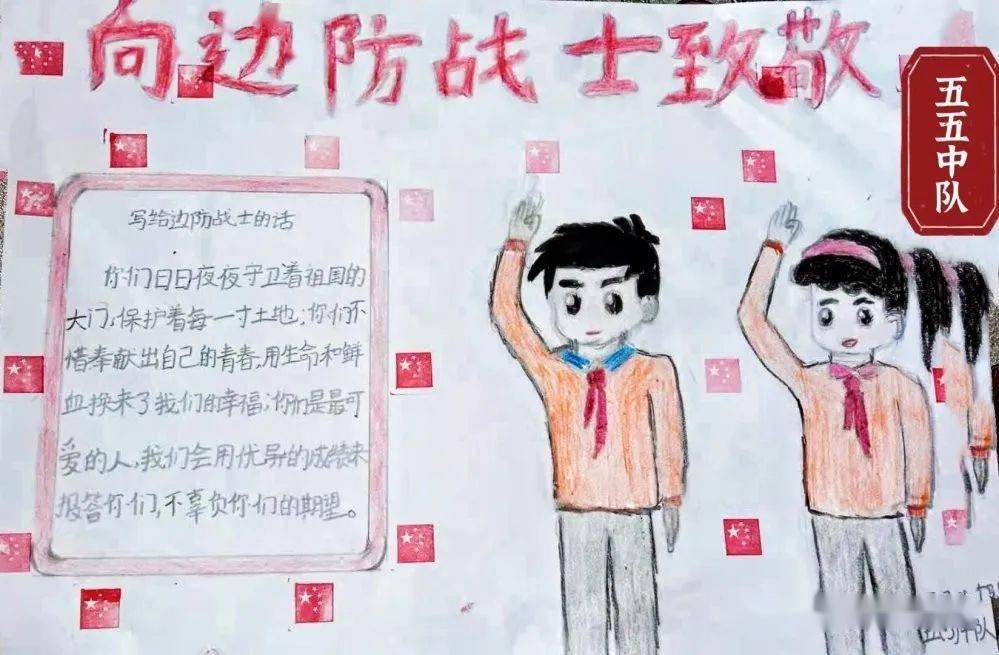 向边防战士致敬
五五中队
写给边防战士的话
你们日日夜夜守卫着祖国的
大门,保护着每一寸土地;你们不
惜奉献出自己的青春,用生命和鲜
血换来了我们的幸福;你们是最可
爱的人,我们会用优异的成绩来
报答你们,不辜负你们的期望。
中队